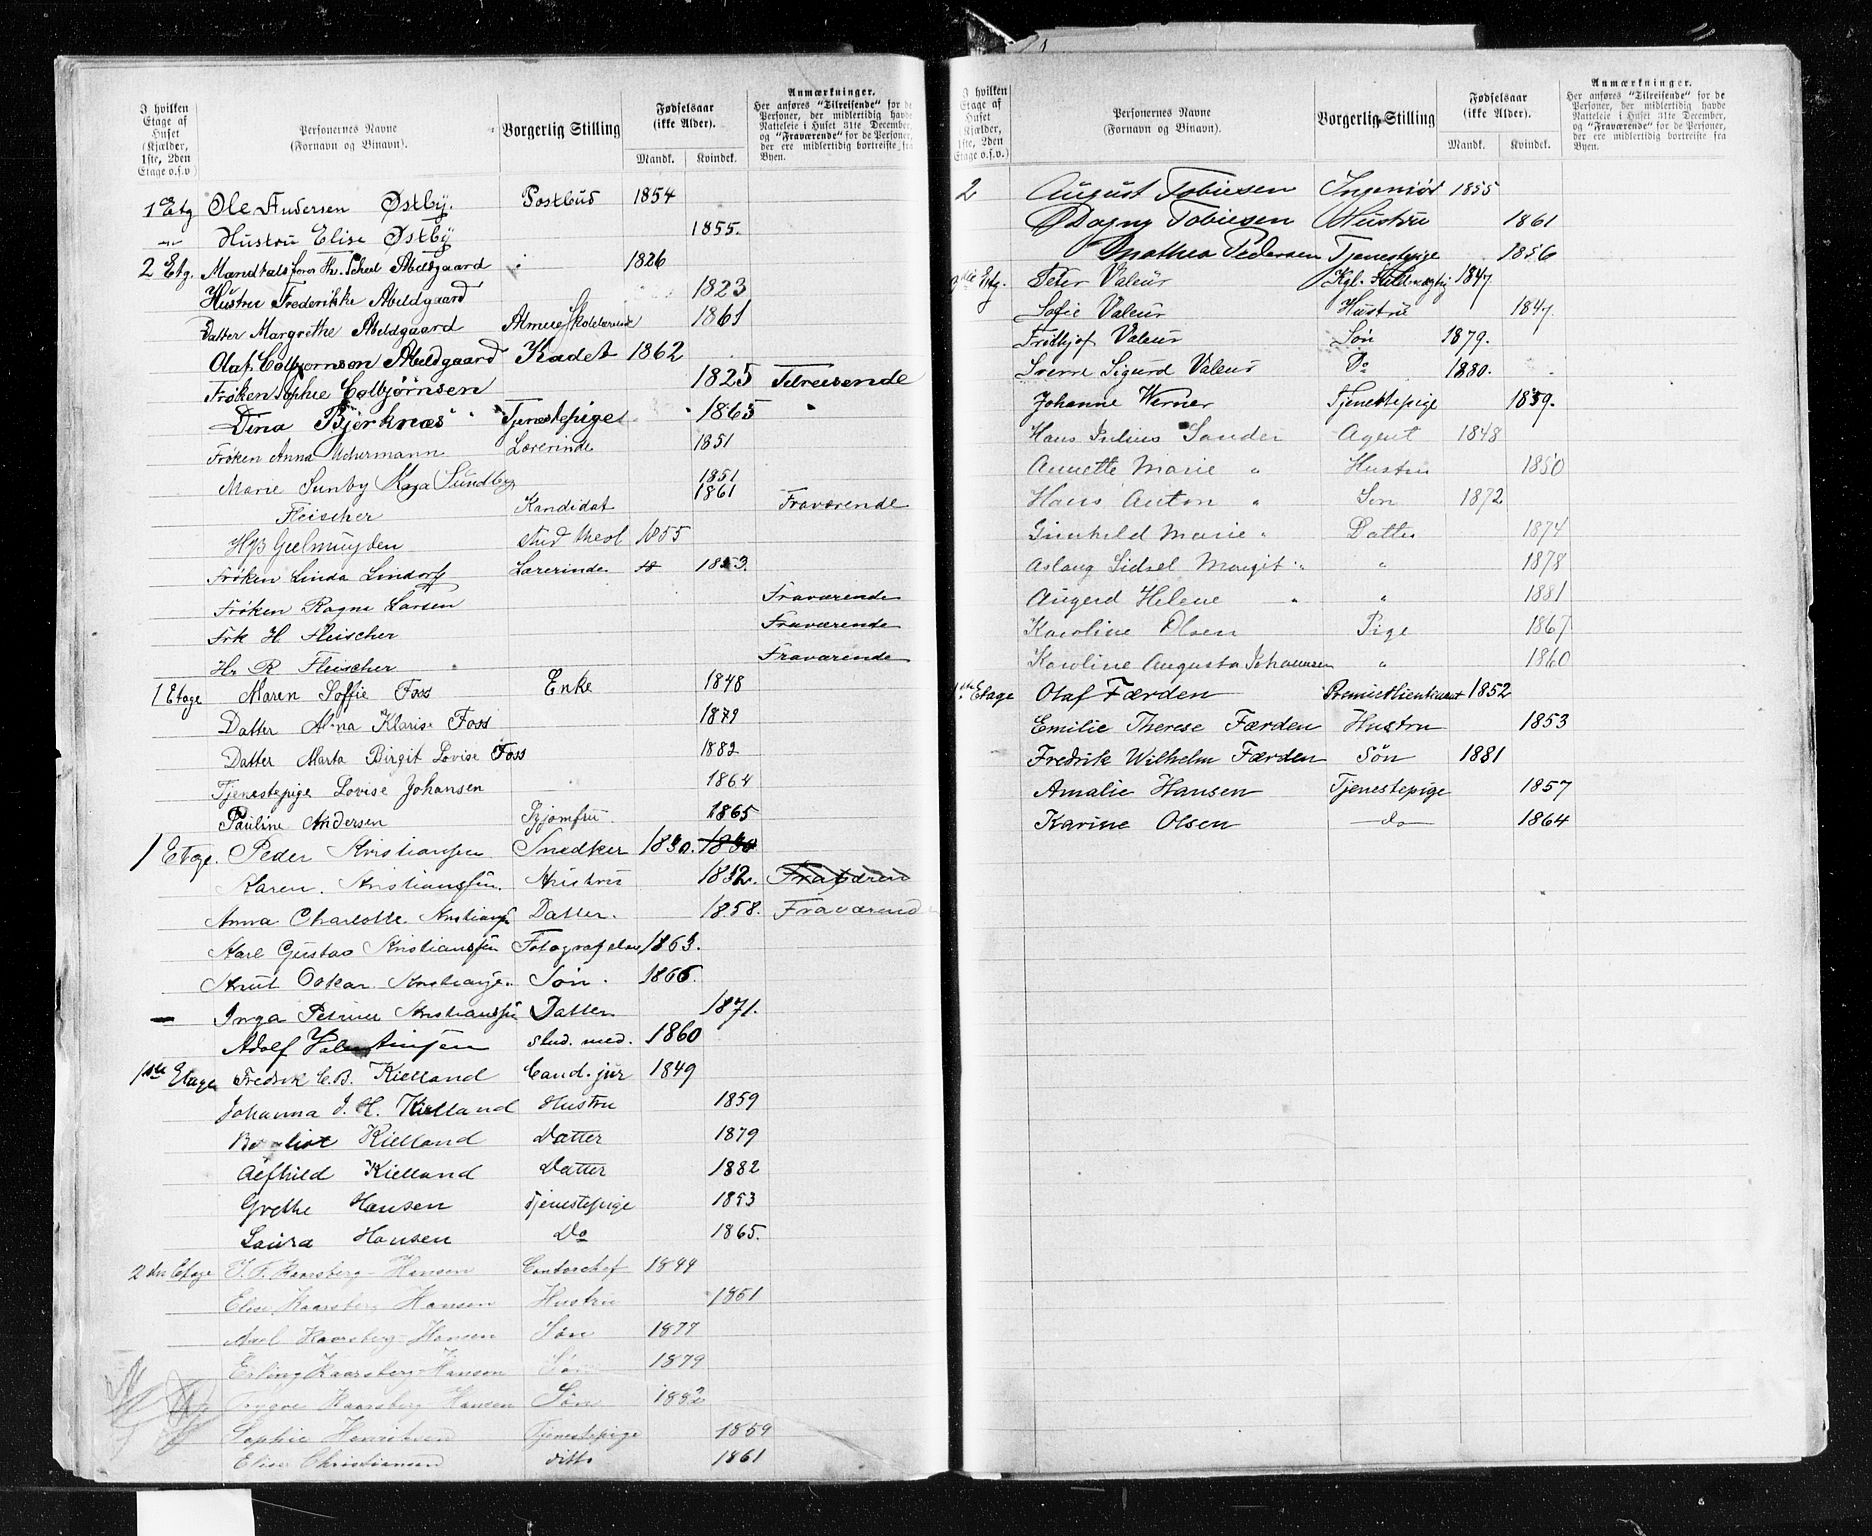 I hvilken Etage af Huset (Kjælder, 1ste, 2den Etage o.s.v)
Personernes Navne (Fornavn og Binavn).
Borgerlig Stilling
Fødselsaar (ikke Alder).
Mandk. Kvindek.
Anmærkninger.
Her anføres "Tilreisende" for de Personer, der midlertidig havde Natteleie i Huset 31te December, og "Fraværende" for de Personer, der ere midlertidig bortreiste fra Byen.
1 Etg Ole Andersen Østby. Postbud 1854
Hustru Elise Østby 1855.
2 Etg. Abildgaard 1826
Hustru Frederikke Abildgaard 1823
Datter Margrethe Abildgaard 1861
Olaf Colbjørnson Abildgaard Kadet 1862
Frøken Sophie Colbjørnsen 1825 Tilreisende
Dina Bjerknæs Tjenestepige 1865
Frøken Anna Uchermann Lærerinde 1851
Marie Sunby Kaja Sundby 1851
1861
Fleischer Kandidat Fraværende
Geelmuyden stud theol 1855
Frøken Linda Lindorff Lærerinde 1853.
Frøken Ragna Larsen Fraværende
Frk H Fleischer Fraværende
Hr R Fleischer Fraværende
1 Etage Maren Soffie Foss Enke 1848
Datter Alina Klarise Foss 1879
Datter Marta Birgit Lovise Foss 1882
Tjenestepige Lovise Johansen 1864
Pauline Andersen 1865
1 Etage. Peder Kristiansen Snedker 1830. 1830
Karen. Kristiansen. Hustru 1832. Fraværend
Anna Charlotte Kristians Datter. 1858. Fraværende
Karl Gustav Kristiansen 1863.
Knut Oskar Kristians. Søn. 1866.
Inga Petrine Kristiansen Datter 1871.
Adolf Valentinsen stud. med. 1860
1ste Etage Fredrik C.B. Kielland Cand. jur 1849
Johanna J. H. Kielland Hustru 1859
Kielland Datter 1879
Alfhild Kielland Datter 1882
Grethe Hansen Tjenestepige 1853
Laura Hansen Do 1865.
2den Etage Kaarsberg-Hansen Contorchef 1844
Elise Kaarsberg Hansen Hustru 1851
Axel Kaarsberg-Hansen Søn 1877
Erling Kaarsberg-Hansen Søn 1879
Trygve Kaarsberg Hansen Søn 1882
Sophie Henriksen Tjenestepige 1859
Elise Christiansen ditto 1861
I hvilken Etage af Huset (Kjælder, 1ste, 2den Etage o.s.v.)
Personernes Navne (Fornavn og Binavn).
Borgerlig Stilling
Fødselsaar (ikke Alder).
Mandk. Kvindek.
Anmærkninger.
Her anføres "Tilreisende" for de Personer, der midlertidig havde Natteleie i Huset 31te December, og "Fraværende" for de Personer, der ere midlertidig bortreiste fra Byen.
2 August Tobiesen Ingeniør 1855
Dagny Tobiesen Hustru 1861
Mathea Pedersen Tjenestepige 1856
Etg. Peter Valeur Kgl. Fuldmægtig 1847.
Sofie Valeur Hustru 1847.
Fridtjof Valeur Søn 1879.
Sverre Sigurd Valeur Do 1880.
Johanne Werner Tjenestepige 1859.
Hans Julius Sander Agent 1848
Annette Marie " Hustru 1850
Hans Anton " Søn 1872
Gunhild Marie " Datter 1874
Aslaug Sidsel Margit " " 1878
Augerd Helene " " 1881
Karoline Olsen Pige 1867
Karoline Augusta Johannsen " 1860
1ste Etage Olaf Færden Premierlieutenant 1852
Emilie Therese Færden Hustru 1853
Fredrik Wilhelm Færden Søn 1881
Amalie Hansen Tjenestepige 1857
Karine Olsen do 1864